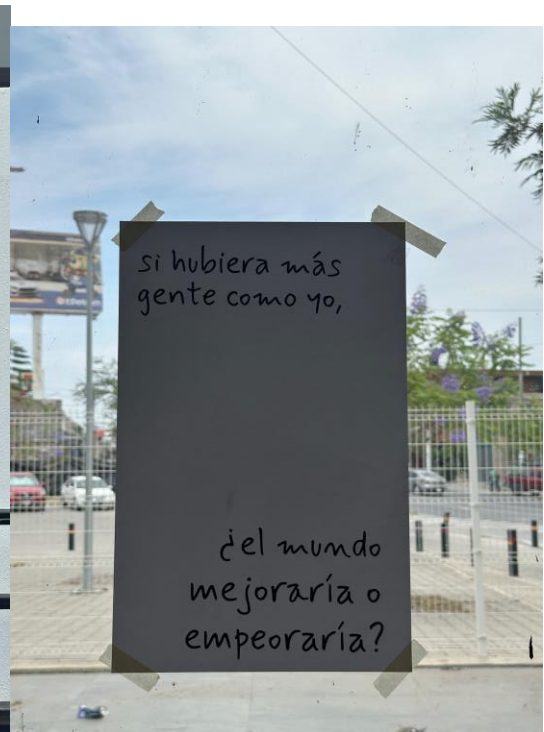 si hubiera más
gente como yo,
¿el mundo
mejoraría o
empeoraría?